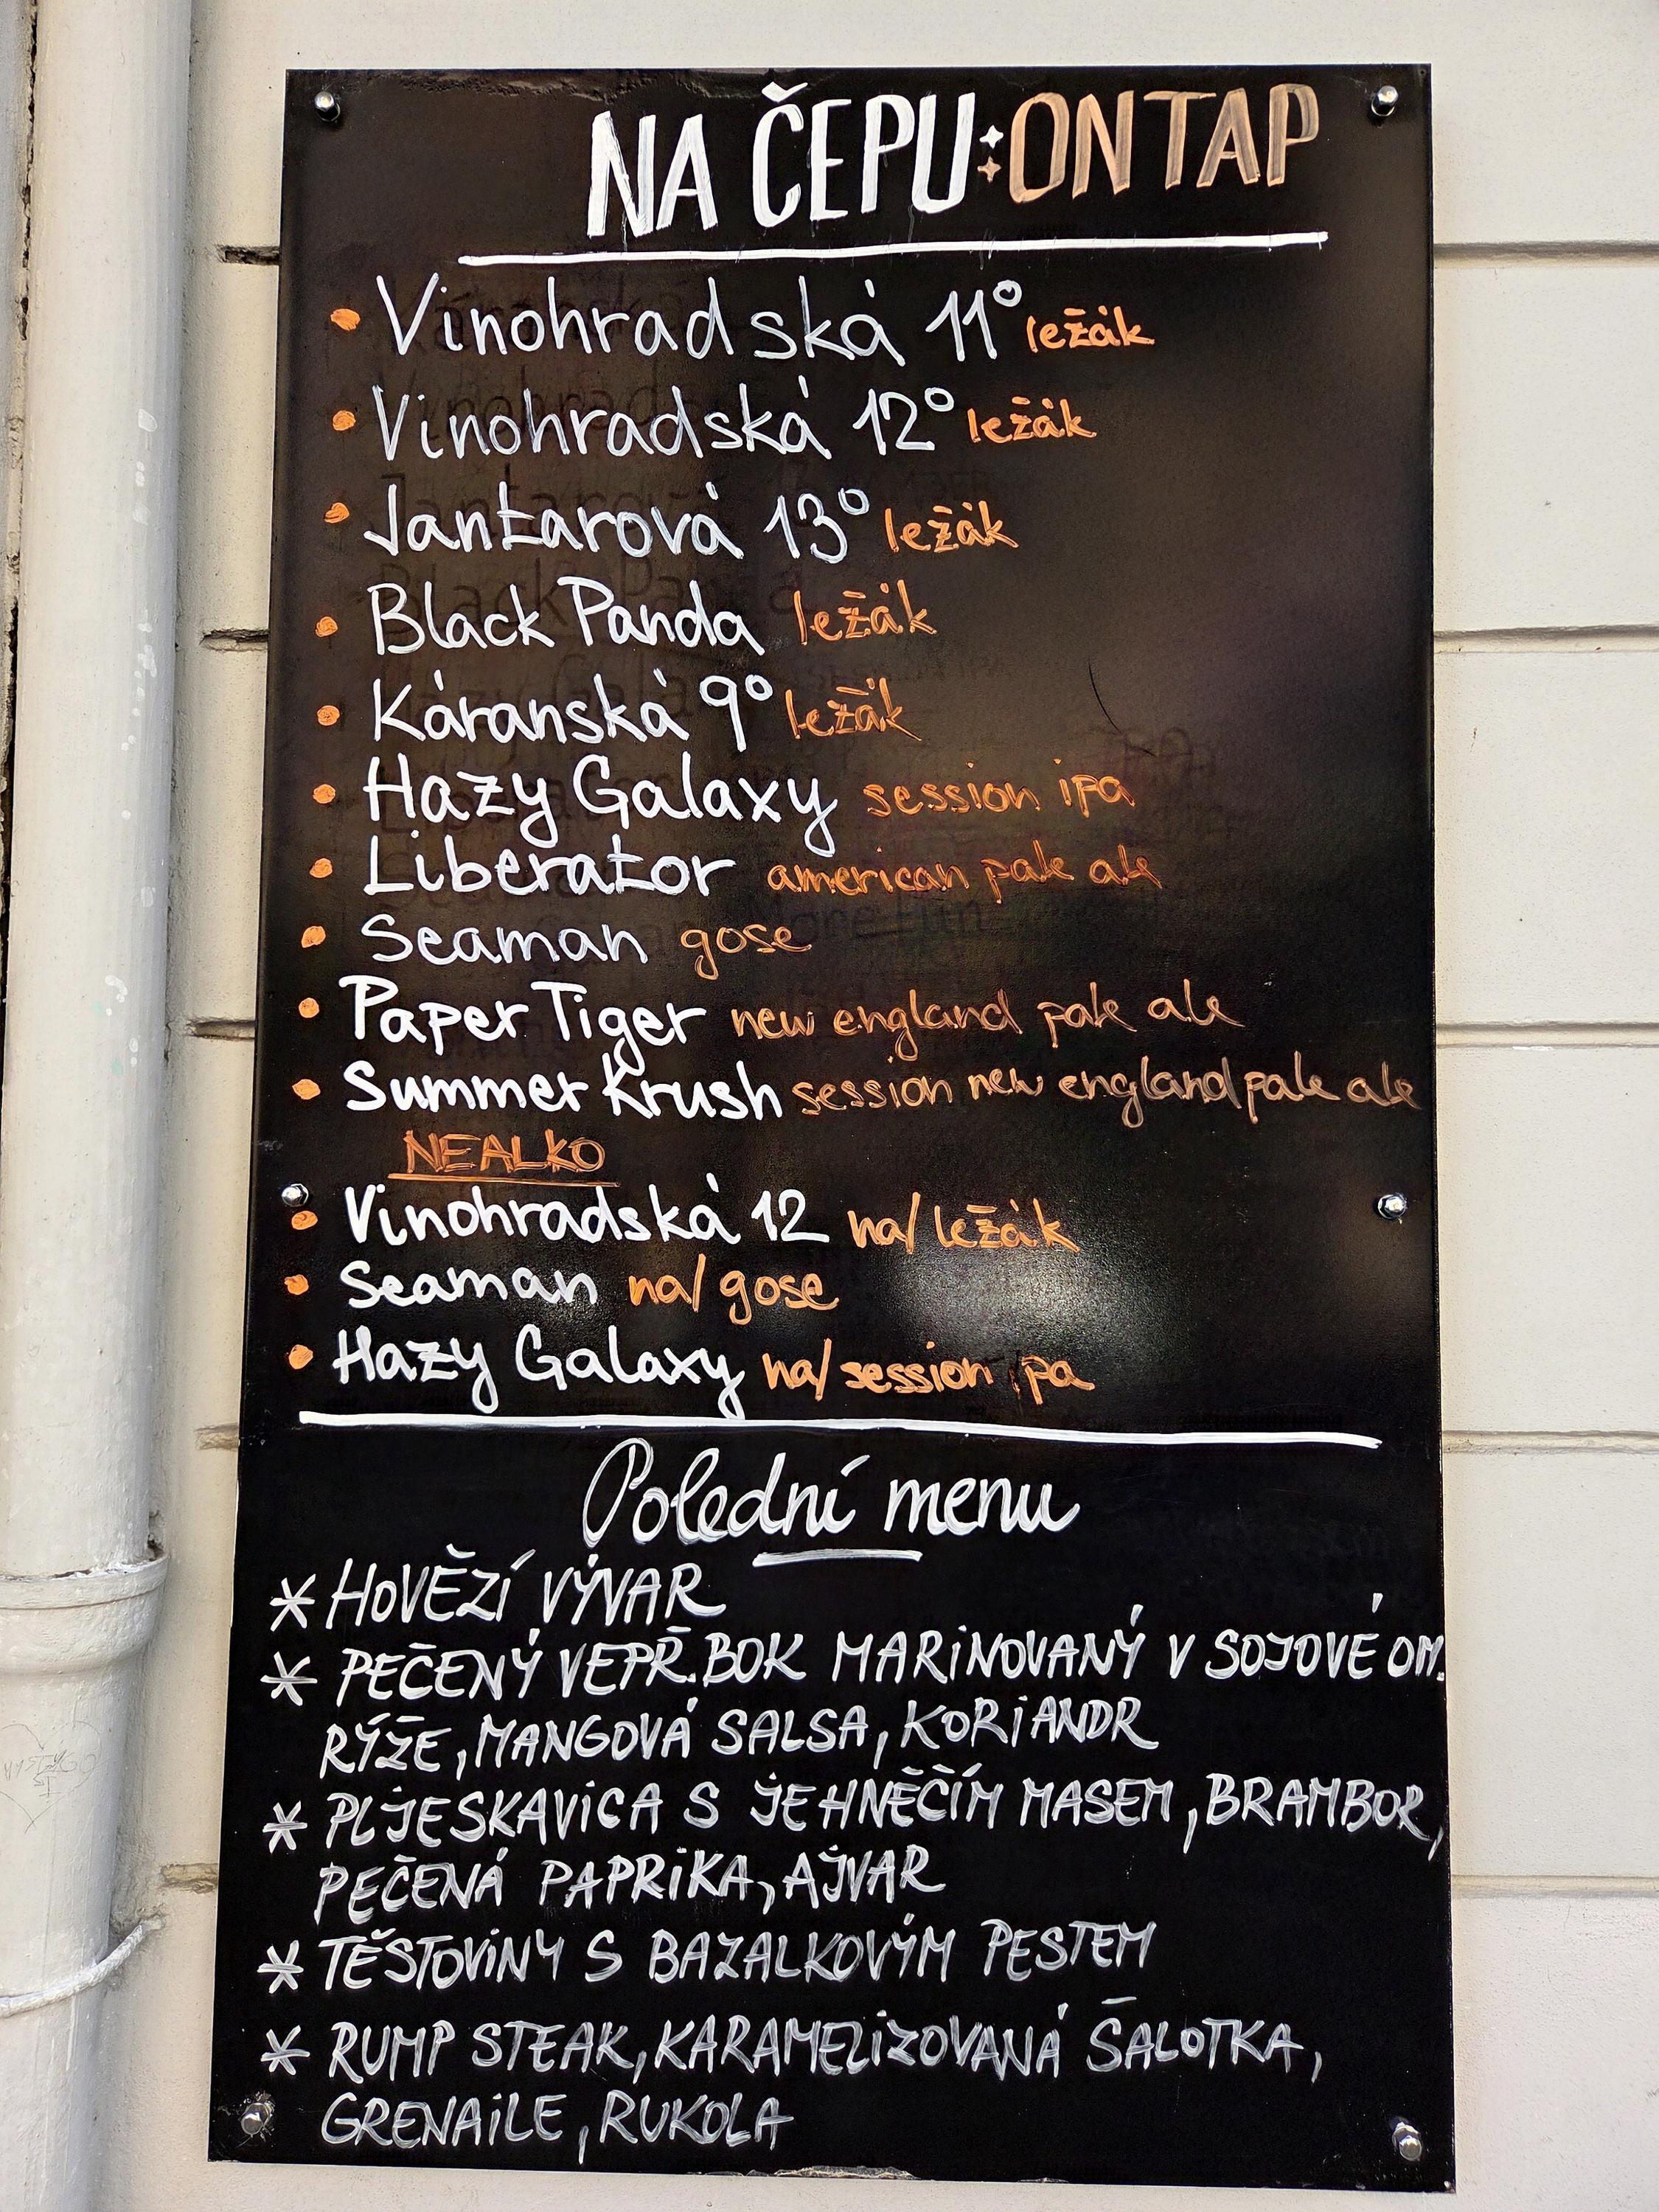 NA ČEPU:ON TAP
• Vinohradská 11° ležák
• Vinohradská 12° ležák
• Jantarová 13° ležák
• Black Panda ležák
• Káranská 9° ležák
• Hazy Galaxy session ipa
• Liberator american pale ale
• Seaman gose
• Paper Tiger new england pale ale
• Summer Krush session new england pale ale
NEALKO
• Vinohradská 12 na/ležák
• Seaman na/gose
• Hazy Galaxy na/session ipa
Polední menu
* HOVĚZÍ VÝVAR
* PEČENÝ VEPŘ. BOK MARINOVANÝ V SOJOVÉ OM.
RÝŽE, MANGOVÁ SALSA, KORIANDR
* PLJESKAVICA S JEHNĚČÍM MASEM, BRAMBOR,
PEČENÁ PAPRIKA, AJVAR
* TĚSTOVINY S BAZALKOVÝM PESTEM
* RUMP STEAK, KARAMELIZOVANÁ ŠALOTKA,
GRENAILE, RUKOLA